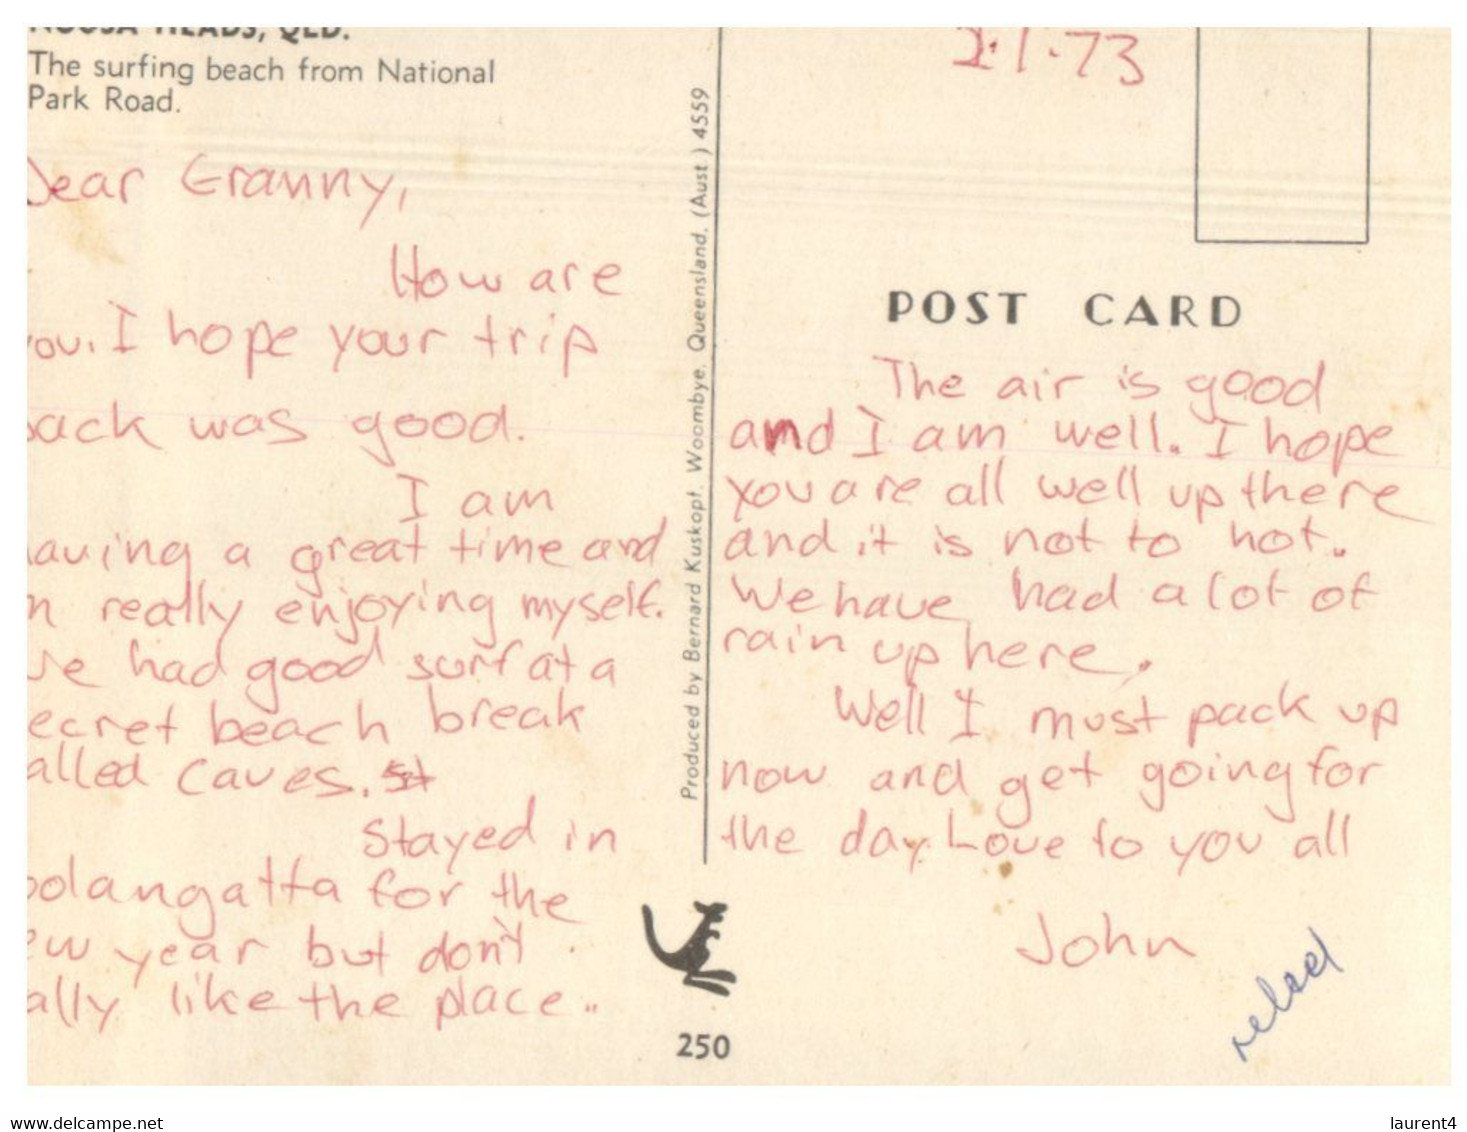 NOOSA HEADS, QLD.
The surfing beach from National
Park Road.
Dear Granny,
How are
you. I hope your trip
back was good.
I am
having a great time and
m really enjoying myself.
ve had good surf at a
ecret beach break
alled Caves. st
Stayed in
oolangatta for the
ew year but don't
ally like the place..
Produced by Bernard Kuskopf, Woombye, Queensland. (Aust.) 4559
250
2.1.73
POST CARD
The air is good
and I am well. I hope
you are all well up there
and it is not to hot.
We have had a lot of
rain up here.
Well I must pack up
now and get going for
the day. Love to you all
John
www.delcampe.net
laurent4